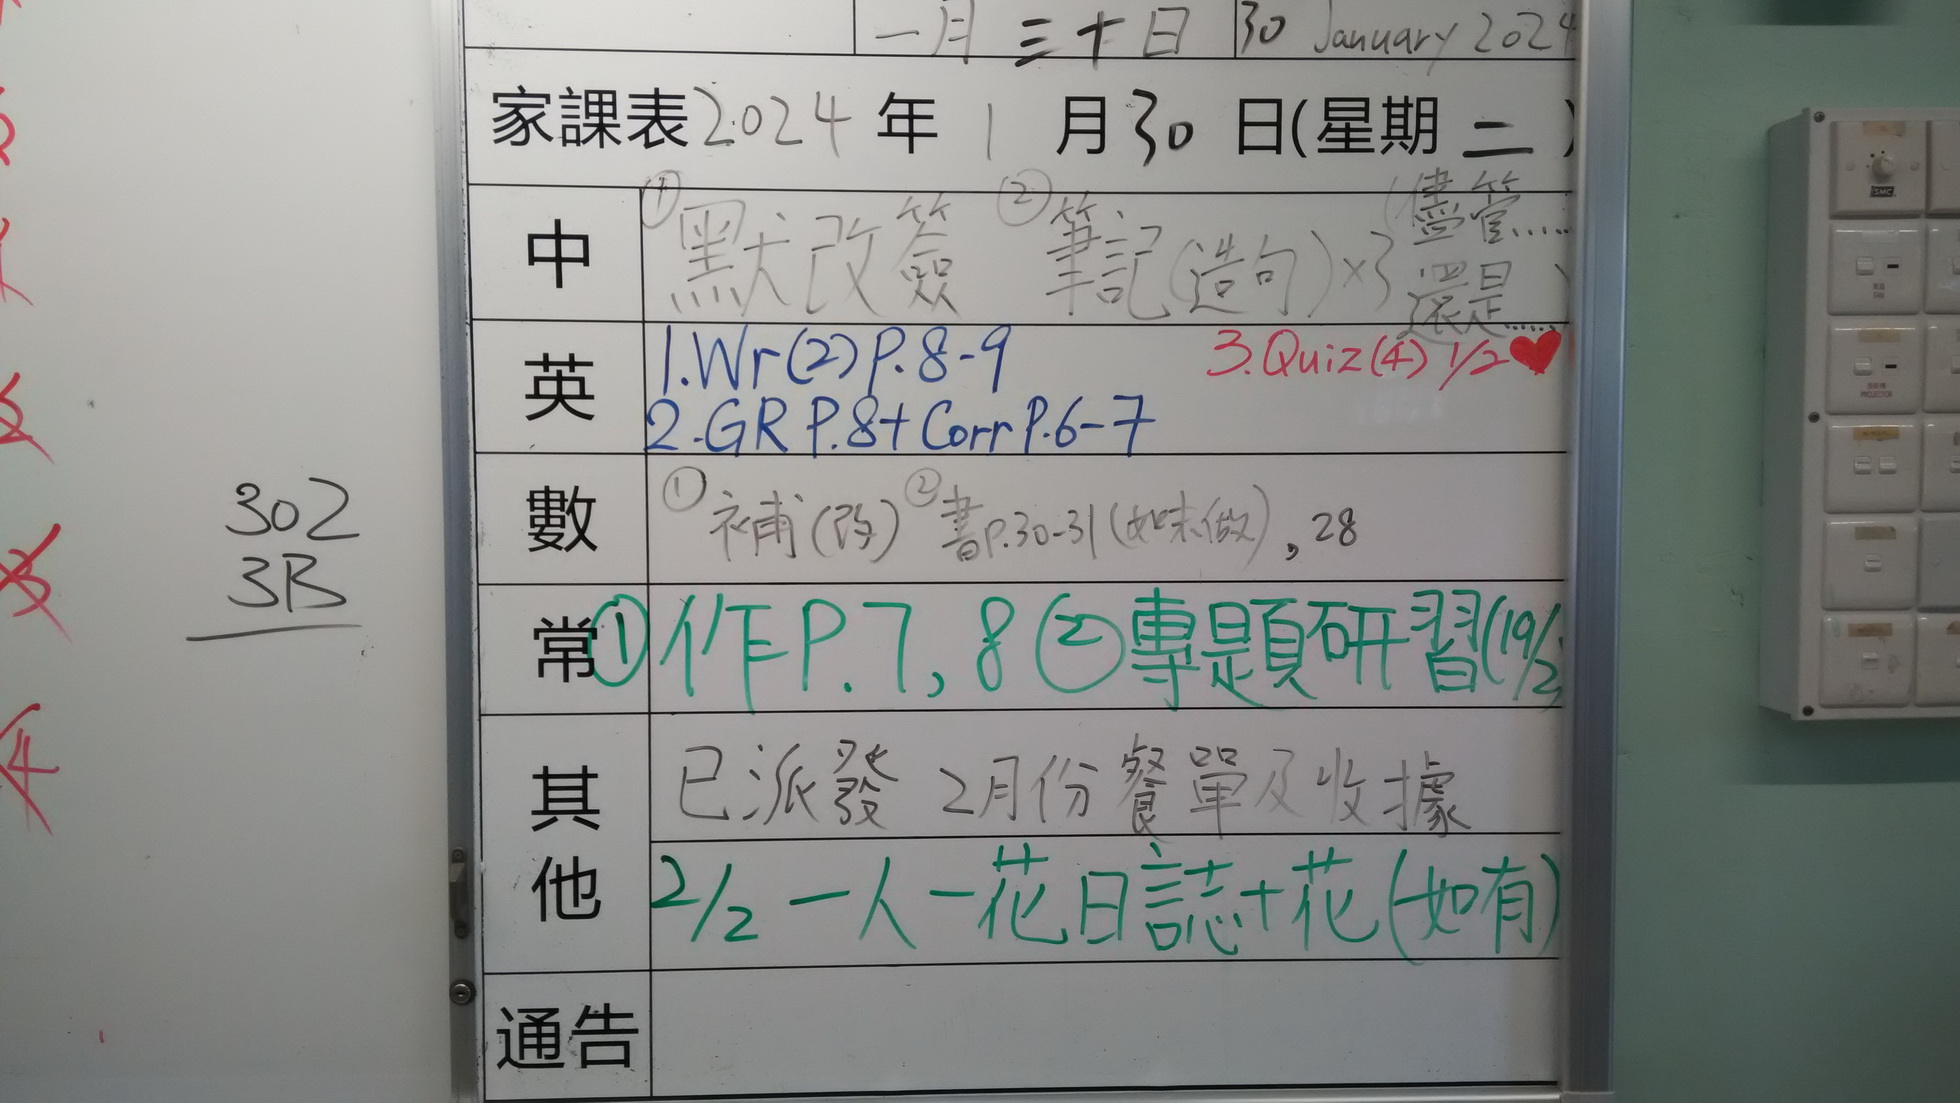 一月三十日 30 January 2024
家課表2024年1月30日(星期二)
中 ①默改簽 ②筆記(造句)×3 (儘管……
還是……)
英 1.Wr(2)P.8-9 3.Quiz(4) 1/2♥
2.GR P.8+Corr P.6-7
數 ①補(改) ②書P.30-31(如未做), 28
常 ①作P.7, 8 ②專題研習(19/2)
其他 已派發 2月份餐單及收據
2/2 一人一花日誌+花(如有)
通告
302
3B
SMC
PROJECTOR